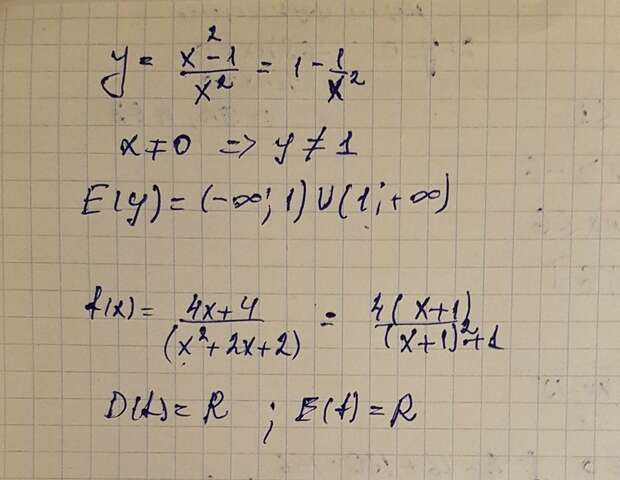 y = (x²-1)/x² = 1 - 1/x²
x ≠ 0 => y ≠ 1
E(y) = (-∞; 1) ∪ (1; +∞)
f(x) = (4x+4)/(x²+2x+2) = 4(x+1)/((x+1)²+1)
D(f) = R ; E(f) = R